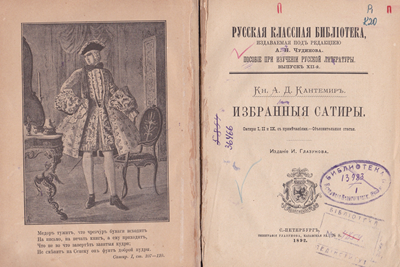 Медоръ тужитъ, что чресчуръ бумага исходитъ
На письмо, на печать книгъ, а ему приходитъ,
Что не въ чѣ завертѣть завитыя кудри;
Не смѣнитъ на Сенеку онъ фунтъ доброй пудры.
Сатир. I, ст. 107—110.
РУССКАЯ КЛАССНАЯ БИБЛІОТЕКА,
ИЗДАВАЕМАЯ ПОДЪ РЕДАКЦІЕЮ
А. Н. Чудинова.
ПОСОБІЕ ПРИ ИЗУЧЕНІИ РУССКОЙ ЛИТЕРАТУРЫ.
ВЫПУСКЪ XII-й.
Кн. А. Д. Кантемиръ.
ИЗБРАННЫЯ САТИРЫ.
Сатиры I, II и IX, съ примѣчаніями.—Объяснительныя статьи.
Изданіе И. Глазунова.
С.-ПЕТЕРБУРГЪ.
1892.
36466
БИБЛИОТЕКА
13983
БИБЛИОТЕКА
820